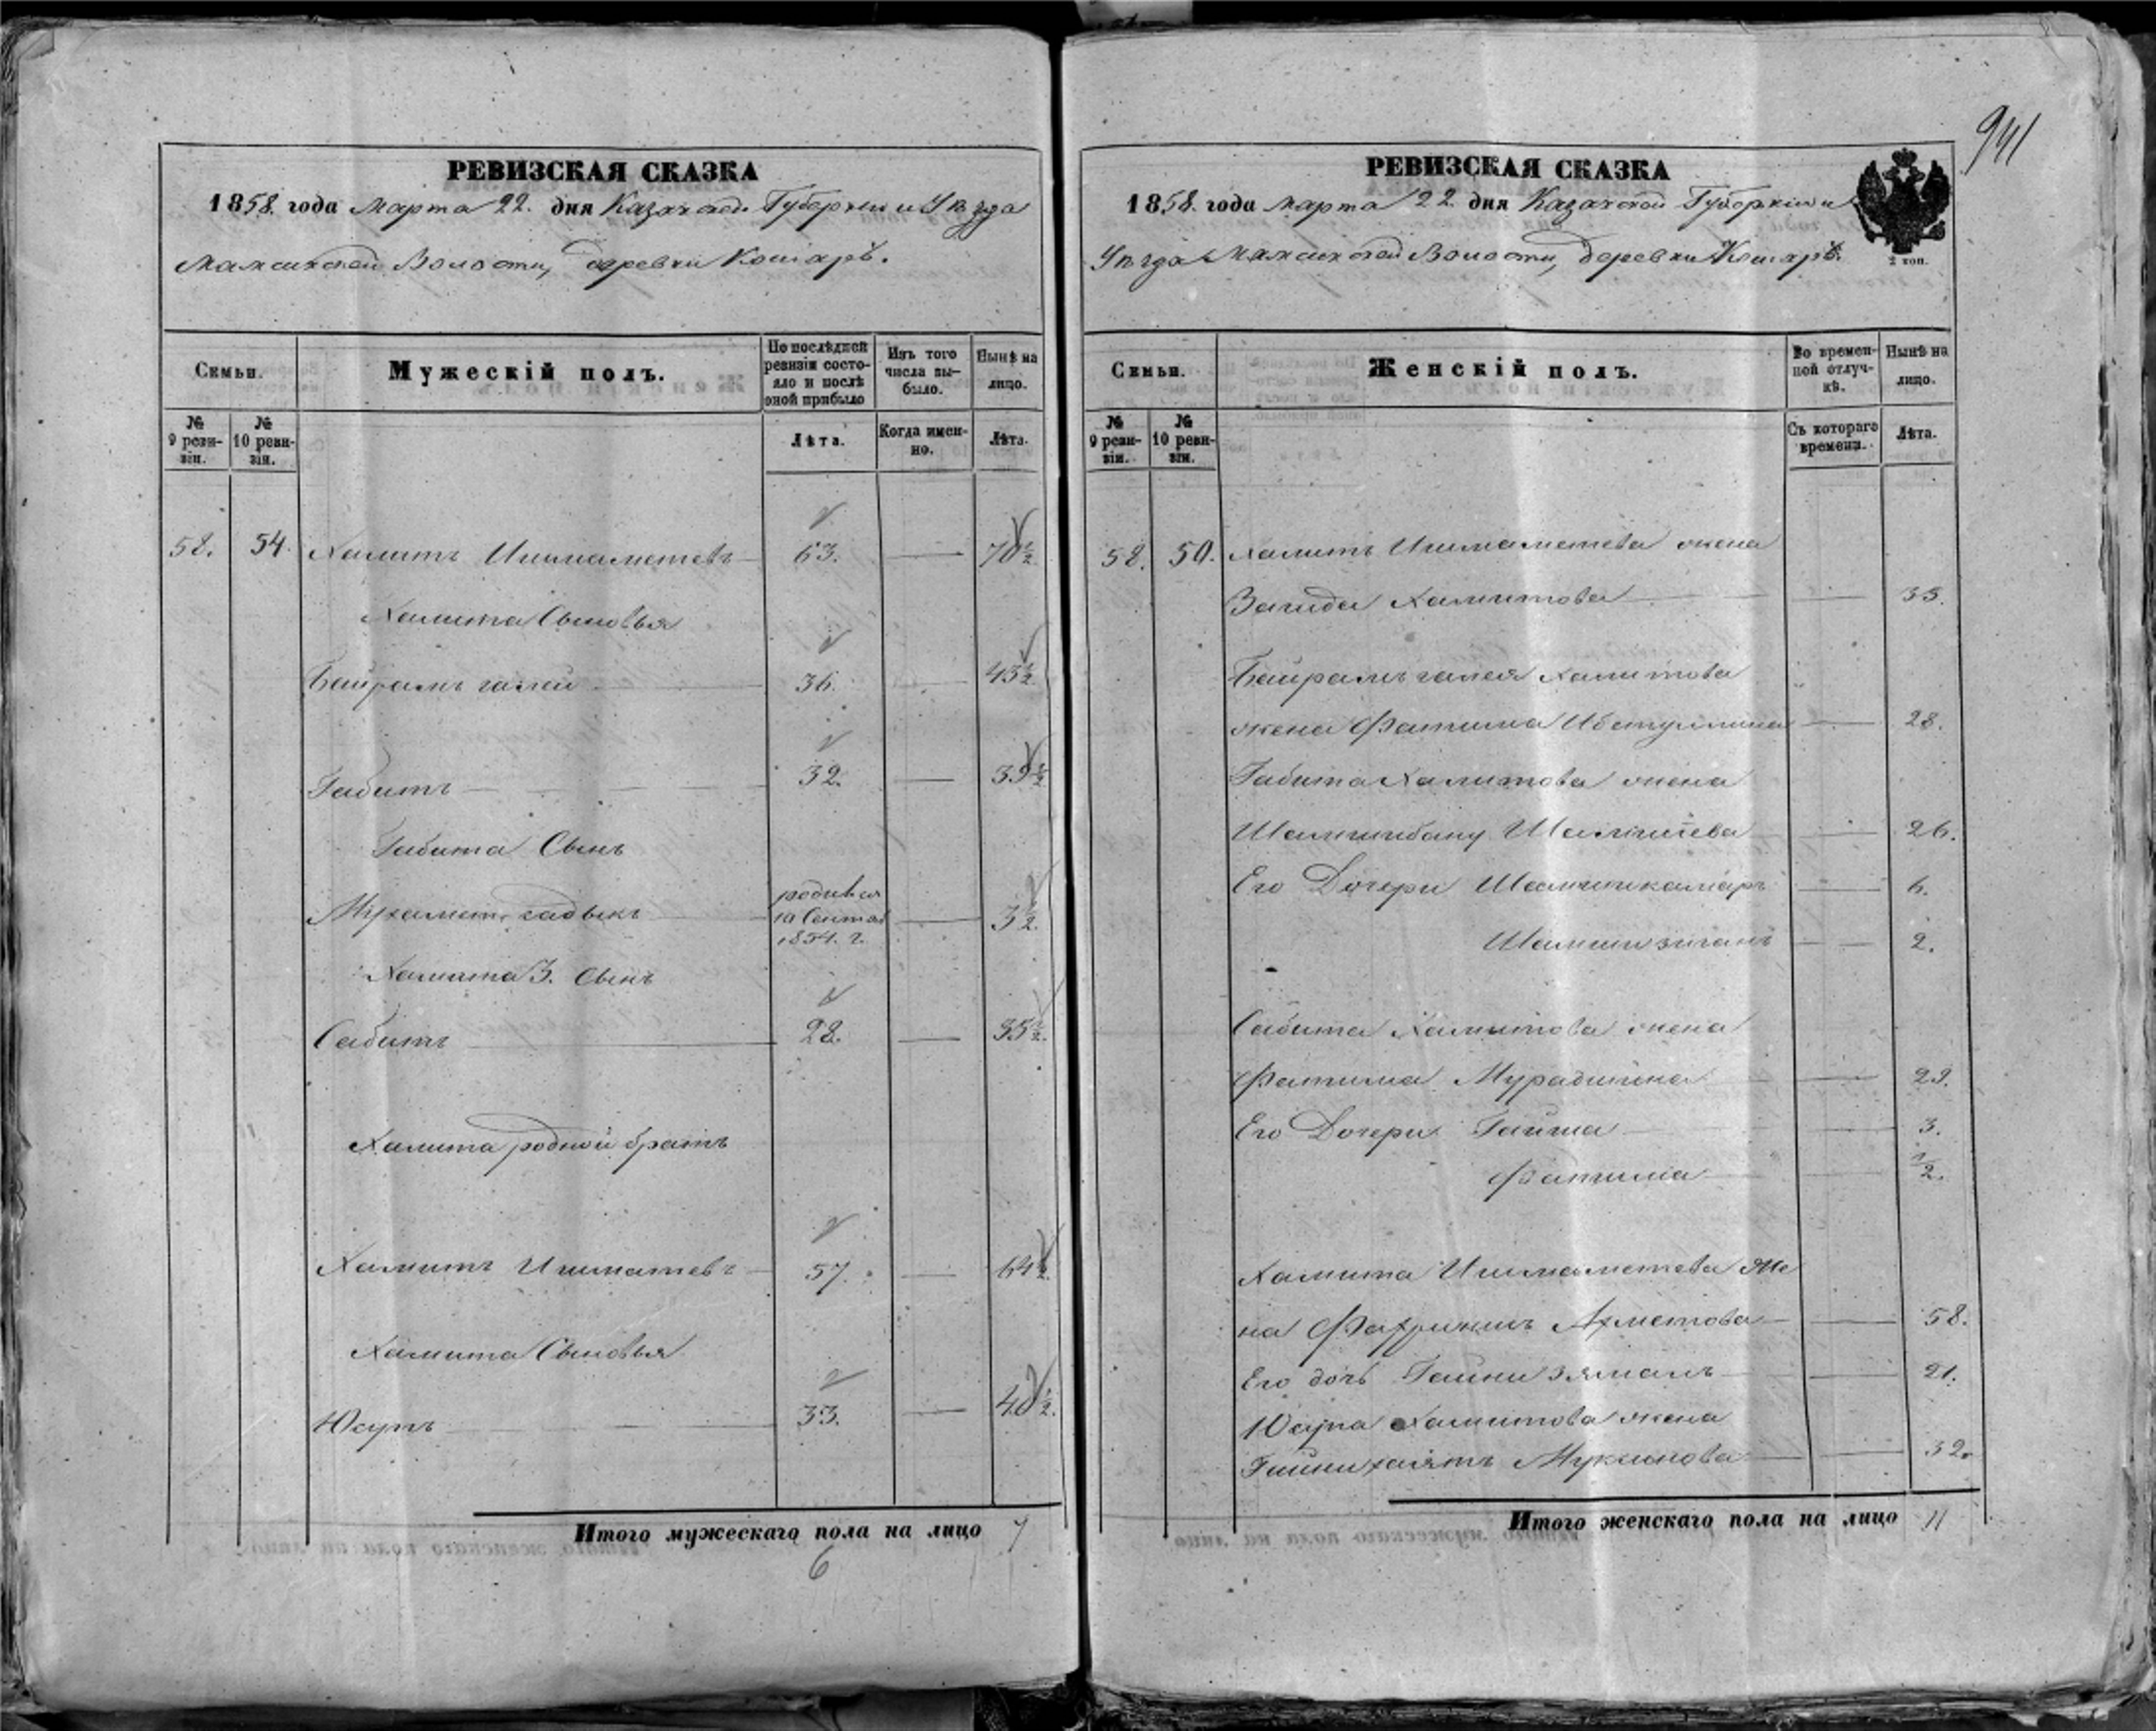 941
РЕВИЗСКАЯ СКАЗКА
1858. года Марта 22. дня Казанской Губернiи и Уѣзда
Мамсинской Волости, деревни Кошаръ.
Семьи.
Мужескiй полъ.
По послѣдней ревизiи состояло и послѣ оной прибыло
Изъ того числа выбыло.
Нынѣ на лицо.
№ 9 ревизiи.
№ 10 ревизiи.
Лѣта.
Когда именно.
Лѣта.
58. 54. Халитъ Ишмаметевъ 63. — 70 1/2.
Халита Сыновья
Байрамъ галей 36. — 43 1/2
Габитъ 32. — 39 1/2
Габита Сынъ
Мухамет садыкъ родився 10 Сентяб 1854. г. — 3 1/2.
Халита 3. Сынъ
Сабитъ 28. — 35 1/2.
Халита родной братъ
Хамитъ Ишматевъ 57. — 64 1/2.
Хамита Сыновья
Юсупъ 33. — 40 1/2.
Итого мужескаго пола на лицо 7
6
РЕВИЗСКАЯ СКАЗКА
1858. года Марта 22. дня Казанской Губернiи и
Уѣзда Мамсинской Волости, деревни Кошаръ.
2 коп.
Семьи.
Женскiй полъ.
Во временной отлучкѣ.
Нынѣ на лицо.
№ 9 ревизiи.
№ 10 ревизiи.
Съ котораго времени.
Лѣта.
58. 50. Халитъ Ишмаметева жена
Загида Хамитова — 35.
Байрамъ галея Халитова
жена Фатима Ибетуллина — 28.
Габита Халитова жена
Шамшибану Шамгиева — 26.
Его Дочери Шамшикамаръ — 6.
Шамшизиганъ — 2.
Сабита Халитова жена
Фатима Мурадшина — 29.
Его Дочери Гайша — 3.
Фатима — 1/2.
Хамита Ишмаметева же
на Фахриниъ Ахметова — 58.
Его дочь Гайни зямалъ — 21.
Юсупа Хамитова жена
Гайнихаятъ Муксинова — 32.
Итого женскаго пола на лицо 11